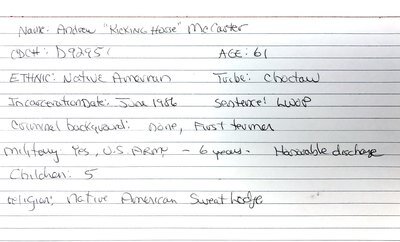 Name: Andrew "Kicking Horse" McCarter
CDC#: D92951 AGE: 61
ETHNIC: Native American Tribe: Choctaw
Incarceration Date: June 1986 Sentence: LWOP
Criminal background: none, First termer
Military: Yes, U.S. ARMY - 6 years. Honorable discharge
Children: 5
religion: Native American Sweat Lodge